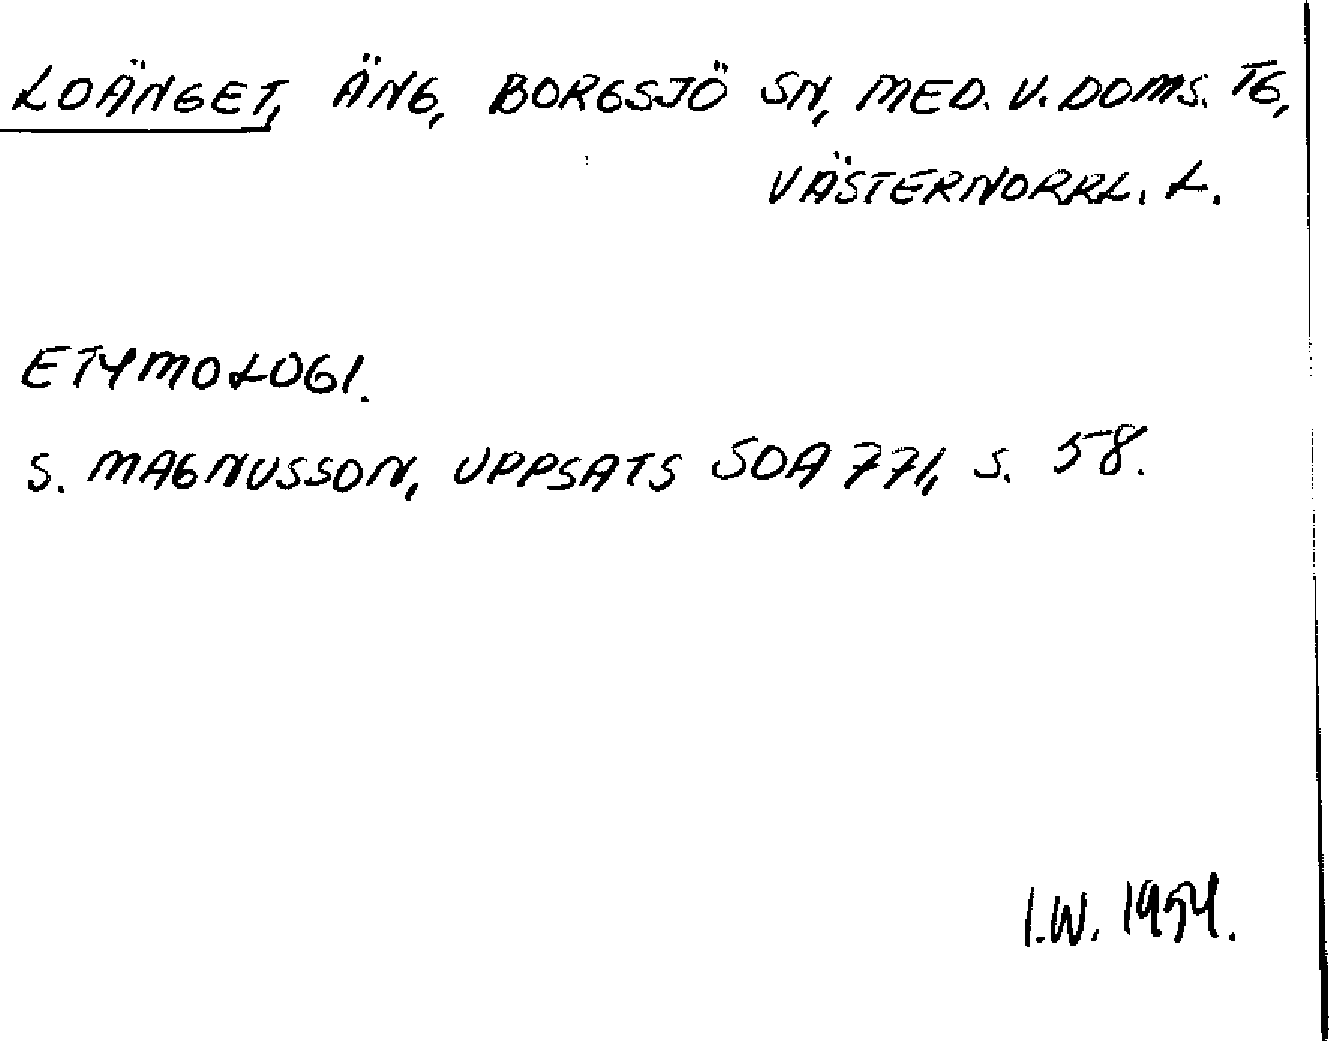 LOÄNGET, ÄNG, BORGSJÖ SN, MED. V. DOMS. TG,
VÄSTERNORRL. L.
ETYMOLOGI.
S. MAGNUSSON, UPPSATS SOA 771, S. 58.
I.W. 1954.